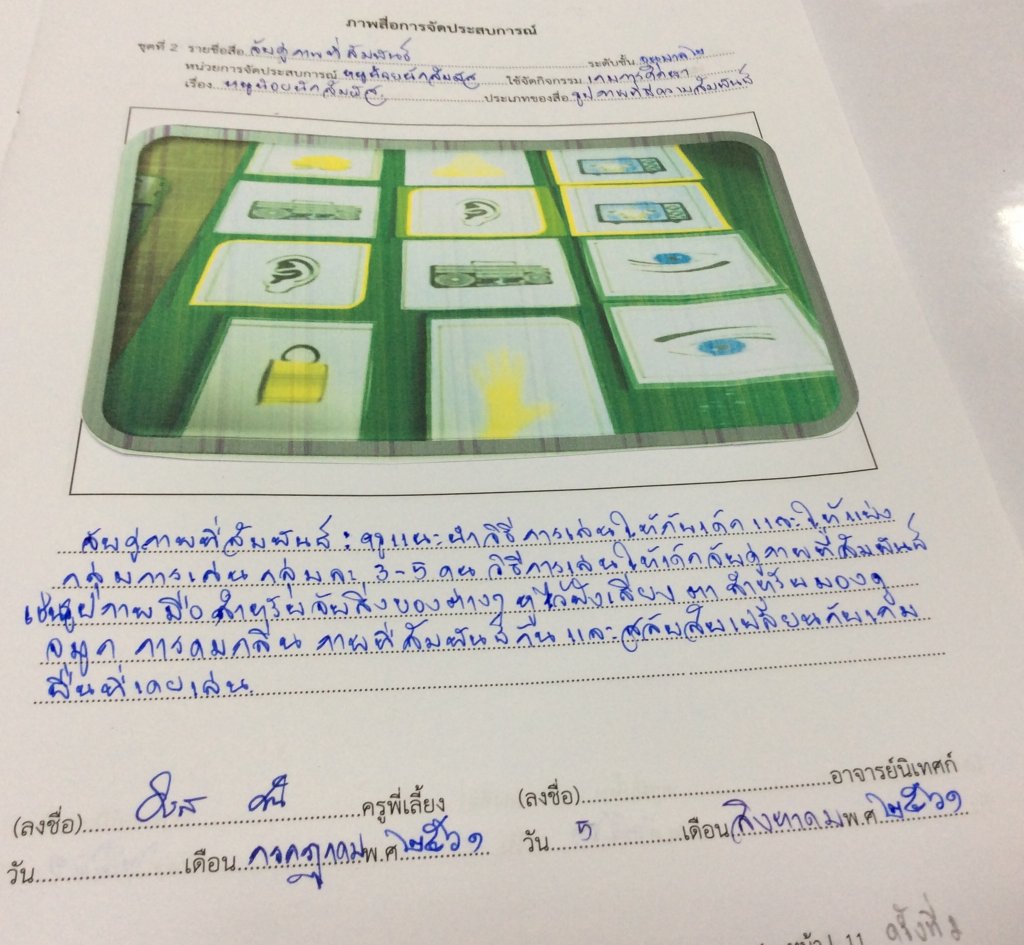 ภาพสื่อการจัดประสบการณ์
ชุดที่ 2 รายชื่อสื่อ จับคู่ภาพที่สัมพันธ์ ระดับชั้น อนุบาล ๒
หน่วยการจัดประสบการณ์ หนูน้อยนักสัมผัส ใช้จัดกิจกรรม เกมการศึกษา
เรื่อง หนูน้อยนักสัมผัส ประเภทของสื่อ รูปภาพที่มีความสัมพันธ์
จับคู่ภาพที่สัมพันธ์ : ครูแนะนำวิธีการเล่นให้กับเด็ก และให้แบ่ง
กลุ่มการเล่น กลุ่มละ 3-5 คน วิธีการเล่นให้เด็กจับคู่ภาพที่สัมพันธ์
เช่นรูปภาพ มือ สำหรับจับสิ่งของต่างๆ หูไว้ฟังเสียง ตา สำหรับมองดู
จมูก การดมกลิ่น ภาพที่สัมพันธ์กัน และสลับสับเปลี่ยนกับเกม
อื่นที่เคยเล่น
(ลงชื่อ) ครูพี่เลี้ยง
วัน เดือน กรกฎาคม พ.ศ ๒๕๖๑
(ลงชื่อ) อาจารย์นิเทศก์
วัน 5 เดือน สิงหาคม พ.ศ ๒๕๖๑
11 ครั้งที่ ๖